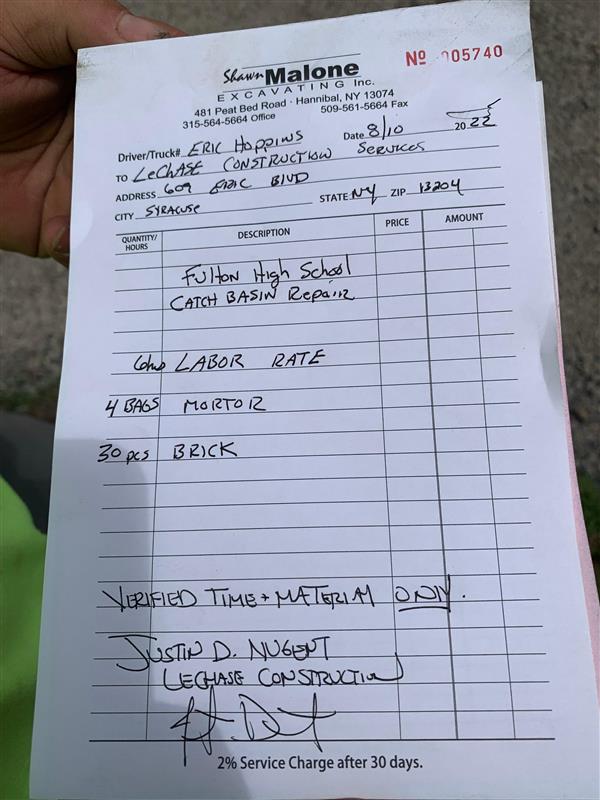 Shawn Malone
EXCAVATING Inc.
Nº 005740
481 Peat Bed Road · Hannibal, NY 13074
315-564-5664 Office 509-561-5664 Fax
Driver/Truck# ERIC HOPPINS Date 8/10 2022
TO LECHASE CONSTRUCTION SERVICES
ADDRESS 609 ERIC BLVD
CITY SYRACUSE STATE NY ZIP 13204
QUANTITY/HOURS DESCRIPTION PRICE AMOUNT
FULTON HIGH SCHOOL
CATCH BASIN REPAIR
6hrs LABOR RATE
4 BAGS MORTOR
30 pcs BRICK
VERIFIED TIME + MATERIAL ONLY.
JUSTIN D. NUGENT
LECHASE CONSTRUCTION
2% Service Charge after 30 days.